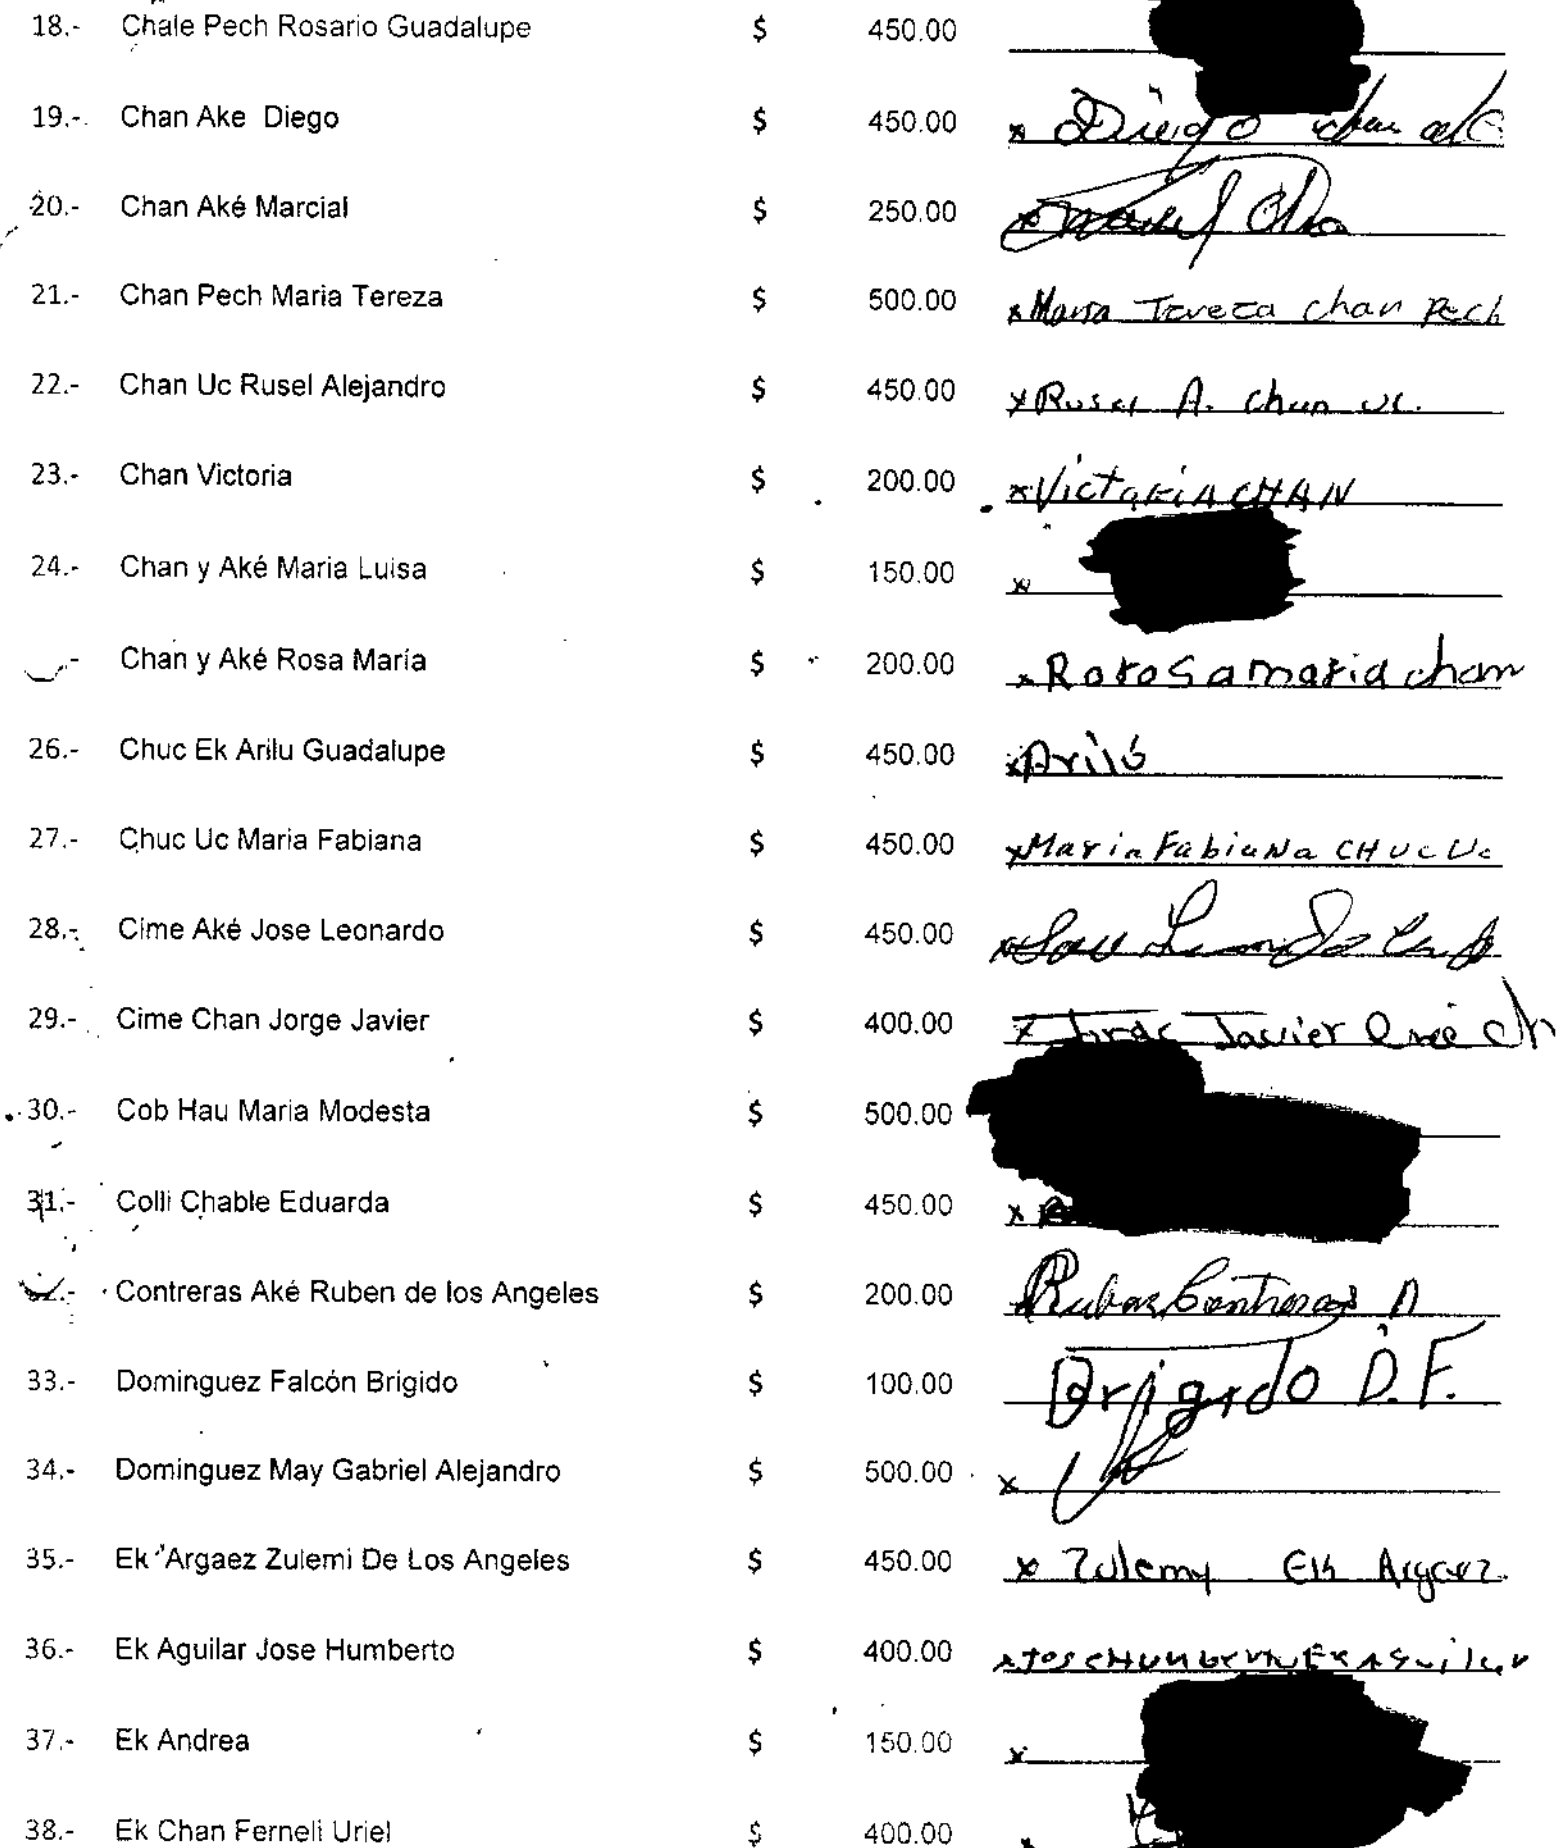 18.- Chale Pech Rosario Guadalupe $ 450.00
19.- Chan Ake Diego $ 450.00 x Diego chan
20.- Chan Aké Marcial $ 250.00
21.- Chan Pech Maria Tereza $ 500.00 x Maria Tereza chan Pech
22.- Chan Uc Rusel Alejandro $ 450.00 x Rusel A. Chan uc.
23.- Chan Victoria $ 200.00 x Victoria CHAN
24.- Chan y Aké Maria Luisa $ 150.00 x
- Chan y Aké Rosa María $ 200.00 x Rorosamaria chan
26.- Chuc Ek Arilu Guadalupe $ 450.00 x Arilú
27.- Chuc Uc Maria Fabiana $ 450.00 x Maria FabiaNa CHUc Uc
28.- Cime Aké Jose Leonardo $ 450.00
29.- Cime Chan Jorge Javier $ 400.00 x Jorge Javier
30.- Cob Hau Maria Modesta $ 500.00
31.- Colli Chable Eduarda $ 450.00 x
.- Contreras Aké Ruben de los Angeles $ 200.00 Ruben Contreras A
33.- Dominguez Falcón Brigido $ 100.00 Brigido D.F.
34.- Dominguez May Gabriel Alejandro $ 500.00 x
35.- Ek Argaez Zulemi De Los Angeles $ 450.00 x Zulemy Ek Argaez
36.- Ek Aguilar Jose Humberto $ 400.00 x JoseHumberto Ek Aguilar
37.- Ek Andrea $ 150.00 x
38.- Ek Chan Ferneli Uriel $ 400.00 x